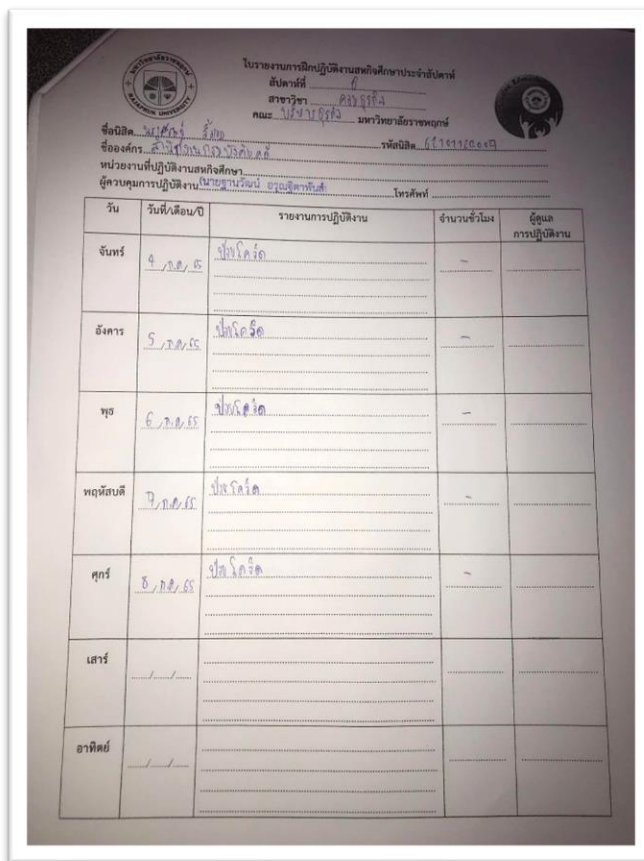 มหาวิทยาลัยราชพฤกษ์
RAJAPRUK UNIVERSITY
ใบรายงานการฝึกปฏิบัติงานสหกิจศึกษาประจำสัปดาห์
สัปดาห์ที่ 6
สาขาวิชา
คณะ บริหารธุรกิจ มหาวิทยาลัยราชพฤกษ์
ชื่อนิสิต รหัสนิสิต
ชื่อองค์กร สำนักงานกรมบังคับคดี
หน่วยงานที่ปฏิบัติงานสหกิจศึกษา
ผู้ควบคุมการปฏิบัติงาน โทรศัพท์
วัน วันที่/เดือน/ปี รายงานการปฏิบัติงาน จำนวนชั่วโมง ผู้ดูแล
การปฏิบัติงาน
จันทร์ 4 / ก.ค. / 65 ป่วยโควิด -
อังคาร 5 / ก.ค. / 65 ป่วยโควิด -
พุธ 6 / ก.ค. / 65 ป่วยโควิด -
พฤหัสบดี 7 / ก.ค. / 65 ป่วยโควิด -
ศุกร์ 8 / ก.ค. / 65 ป่วยโควิด -
เสาร์ / /
อาทิตย์ / /